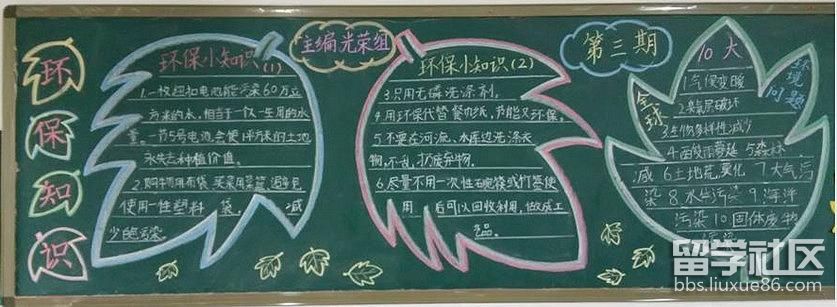 环
保
知
识
环保小知识(1)
1.一枚纽扣电池能污染60万立
方米的水,相当于一个人一生用的水
量。一节5号电池会使1平方米的土地
永失去种植价值。
2.购物用布袋 买菜用菜篮 避免
使用一性塑料 袋。 减
少白色污染。
主编光荣组
环保小知识(2)
3.只用无磷洗涤剂。
4.用环保代替餐巾纸,节能又环保。
5.不要在河流、水库边洗涤衣
物,不乱扔废弃物。
6.尽量不用一次性石碗筷或打签使
用 后可以回收利用,做成工
艺品。
第三期
10大
全球
环境
问题
1气候变暖
2臭氧层破坏
3生物多样性减少
4酸雨蔓延 5森林
减 6土地荒漠化 7大气污
染 8水体污染 9海洋
污染 10固体废物
污染
留学社区
bbs.liuxue86.com